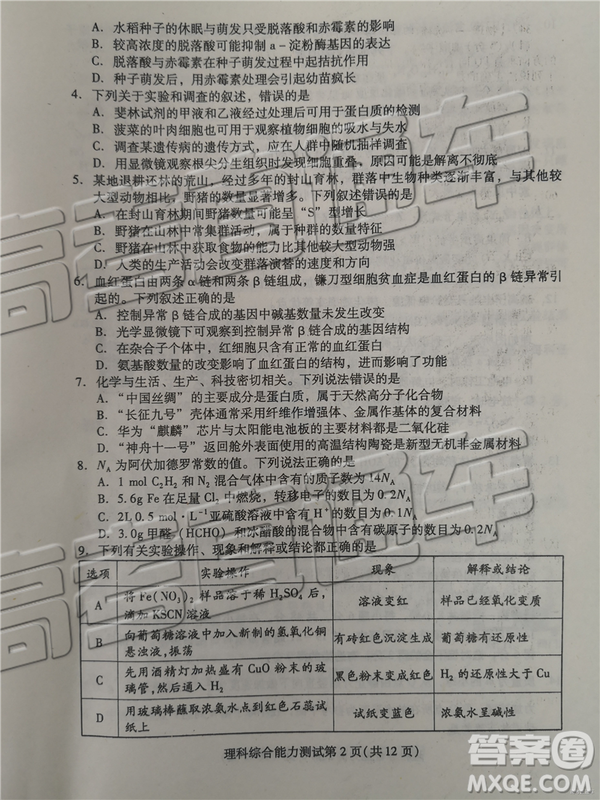 A. 水稻种子的休眠与萌发只受脱落酸和赤霉素的影响
B. 较高浓度的脱落酸可能抑制 a-淀粉酶基因的表达
C. 脱落酸与赤霉素在种子萌发过程中起拮抗作用
D. 种子萌发后，用赤霉素处理会引起幼苗疯长
4. 下列关于实验和调查的叙述，错误的是
A. 斐林试剂的甲液和乙液经过处理后可用于蛋白质的检测
B. 菠菜的叶肉细胞也可用于观察植物细胞的吸水与失水
C. 调查某遗传病的遗传方式，应在人群中随机抽样调查
D. 用显微镜观察根尖分生组织时发现细胞重叠，原因可能是解离不彻底
5. 某地退耕还林的荒山，经过多年的封山育林，群落中生物种类逐渐丰富，与其他较
大型动物相比，野猪的数量显著增多。下列叙述错误的是
A. 在封山育林期间野猪数量可能呈“S”型增长
B. 野猪在山林中常成群活动，野猪的种群属于集群分布
C. 野猪在山林中获取食物的能力比其他较大型动物强
D. 人类的生产活动会改变群落演替的速度和方向
6. 血红蛋白由两条 α 链和两条 β 链组成，镰刀型细胞贫血症是血红蛋白的 β 链异常引
起的。下列叙述正确的是
A. 控制异常 β 链合成的基因中碱基数量未发生改变
B. 光学显微镜下可观察到控制异常 β 链合成的基因结构
C. 在杂合子个体中，红细胞只含有正常的血红蛋白
D. 氨基酸数量的改变影响了血红蛋白的结构，进而影响了功能
7. 化学与生活、生产、科技密切相关。下列说法错误的是
A. “中国丝绸”的主要成分是蛋白质，属于天然高分子化合物
B. “长征九号”壳体通常采用纤维作增强体、金属作基体的复合材料
C. 华为“麒麟”芯片与太阳能电池板的主要材料都是二氧化硅
D. “神舟十一号”返回舱外表面使用的高温结构陶瓷是新型无机非金属材料
8. N_A 为阿伏加德罗常数的值。下列说法正确的是
A. 1 mol C₂H₂ 和 N₂ 混合气体中含有的质子数为 14N_A
B. 5.6g Fe 在足量 Cl₂ 中燃烧，转移电子的数目为 0.2N_A
C. 2L 0.5 mol·L⁻¹ 亚硫酸溶液中含有 H⁺ 的数目为 0.1N_A
D. 3.0g 甲醛(HCHO)和冰醋酸的混合物中含有碳原子的数目为 0.2N_A
9. 下列有关实验操作、现象和解释或结论都正确的是
选项 实验操作 现象 解释或结论
A 将 Fe(NO₃)₂ 样品溶于稀 H₂SO₄ 后，滴加 KSCN 溶液 溶液变红 样品已经氧化变质
B 向葡萄糖溶液中加入新制的氢氧化铜悬浊液，振荡 有砖红色沉淀生成 葡萄糖有还原性
C 先用酒精灯加热盛有 CuO 粉末的玻璃管，然后通入 H₂ 黑色粉末变成红色 H₂ 的还原性大于 Cu
D 用玻璃棒蘸取浓氨水点到红色石蕊试纸上 试纸变蓝色 浓氨水呈碱性
理科综合能力测试第 2 页(共 12 页)
高考直通车
答案圈
MXQE.COM